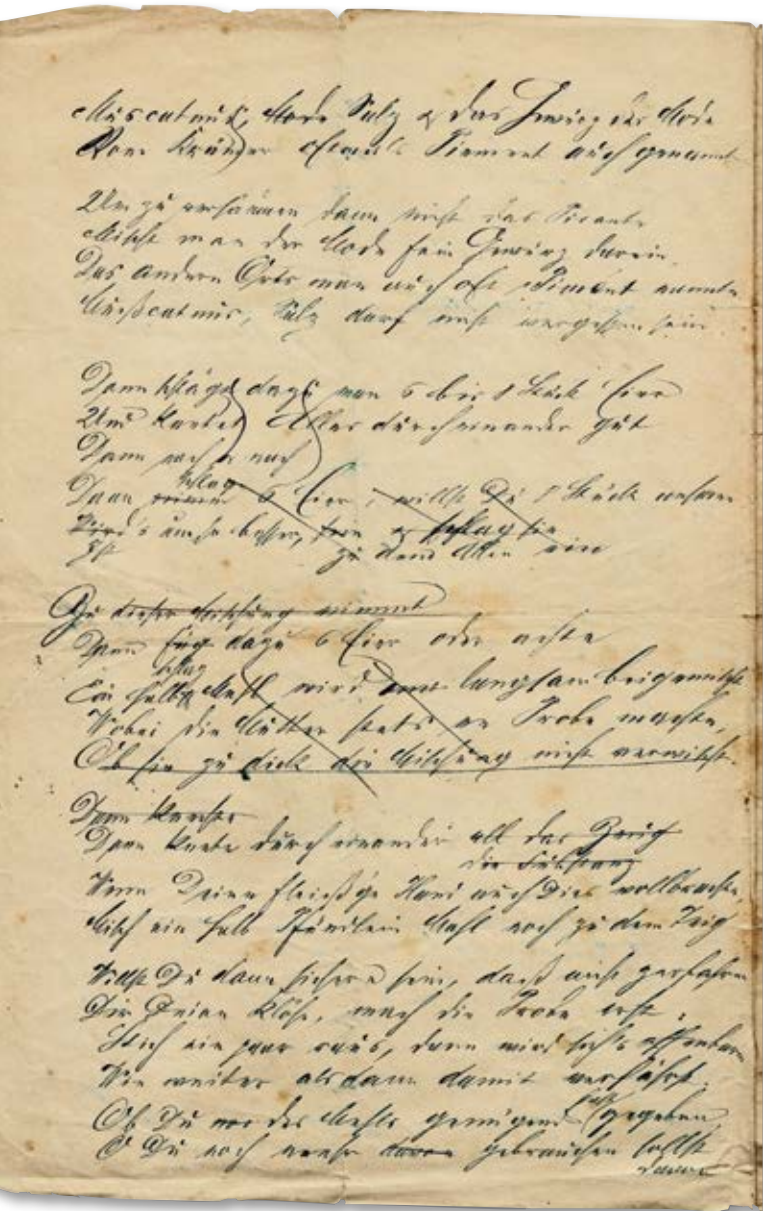 Muscatnuß, Mode Salz & das Gewürz der Mode
Vom Krämer Piement auch genannt
Um zu versäumen dann nicht das Picante
Mischt man der Mode fein Gewürz darein
Das andern Orts man auch oft Piment nannte
Mußcatnus, Salz darf nicht vergessen sein
Dann schlägt dazu man 6 bis 8 Stück Eier
Und knetet Alles durcheinander gut
Dann nach & nach
schlag
Dann 6 Eier, willst Du 8 Stück nehmen
Wird's um so besser, schlag sie
Ist zu dem Allen ein
Zu dieser Mischung nimmt
Dann füg dazu 6 Eier oder achte
schlag
Ein halb Mehl wird langsam beigemischt
Wobei die Mutter stets ne Probe machte,
Ob sie zu dick die Mischung nicht verwischt.
Dann
Dann knete durcheinander all das Zeug
die Substanz
Wenn Deine fleiß'ge Hand auch Dies vollbrachte,
Misch ein halb Pfündlein Mehl noch zu dem Teig
Willst Du dann sicher sein, daß nicht zerfahren
Dir Deine Klöse, mach die Probe erst.
Stich ein paar raus, dann wird sich's offenbaren
Wie weiter alsdann damit verfährst.
Ob Du des Mehls genügend gegeben
O Du noch mehr davon gebrauchen sollst
davon